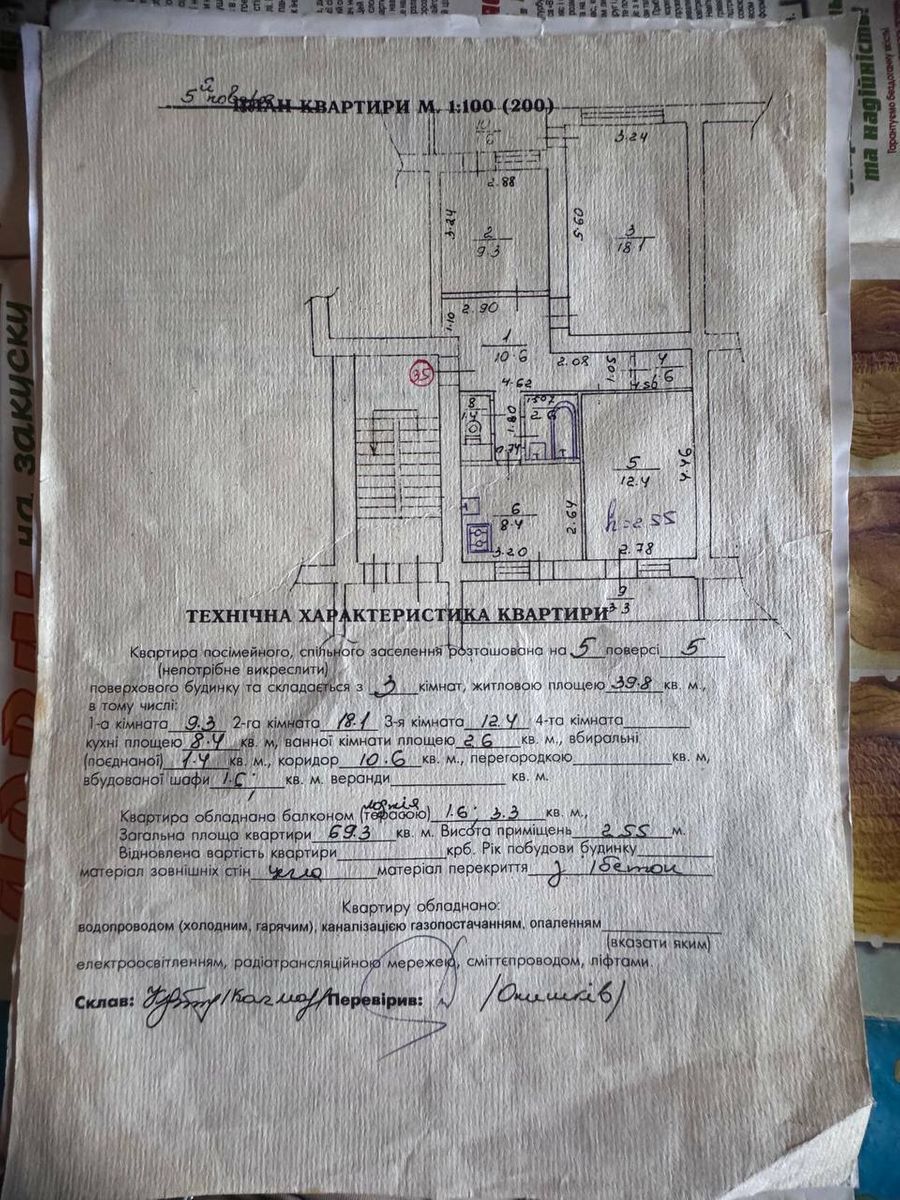 5й поверх
ПЛАН КВАРТИРИ М. 1:100 (200)
та надійність!
на закуску
10
1.6
3.24
2.88
3.24
2
9.3
5.60
3
18.1
2.90
1.10
1
10.6
35
2.08
1.05
4
1.6
1.56
4.62
8
1.4
1.80
1.50
7
2.6
0.74
5
12.4
4.46
6
8.4
2.64
h=2.55
3.20
2.78
9
3.3
ТЕХНІЧНА ХАРАКТЕРИСТИКА КВАРТИРИ
Квартира посімейного, спільного заселення розташована на 5 поверсі 5
(непотрібне викреслити)
поверхового будинку та складається з 3 кімнат, житловою площею 39.8 кв. м.,
в тому числі:
1-а кімната 9.3 2-га кімната 18.1 3-я кімната 12.4 4-та кімната
кухні площею 8.4 кв. м, ванної кімнати площею 2.6 кв. м., вбиральні
(поєднаної) 1.4 кв. м., коридор 10.6 кв. м., перегородкою кв. м,
вбудованої шафи 1.6; кв. м. веранди кв. м.
лоджія
Квартира обладнана балконом (терасою) 1.6; 3.3 кв. м.,
Загальна площа квартири 69.3 кв. м. Висота приміщень 2.55 м.
Відновлена вартість квартири крб. Рік побудови будинку
матеріал зовнішніх стін цегла матеріал перекриття з/бетон
Квартиру обладнано:
водопроводом (холодним, гарячим), каналізацією газопостачанням, опаленням
(вказати яким)
електроосвітленням, радіотрансляційною мережею, сміттєпроводом, ліфтами.
Склав: Перевірив: /Онишків/